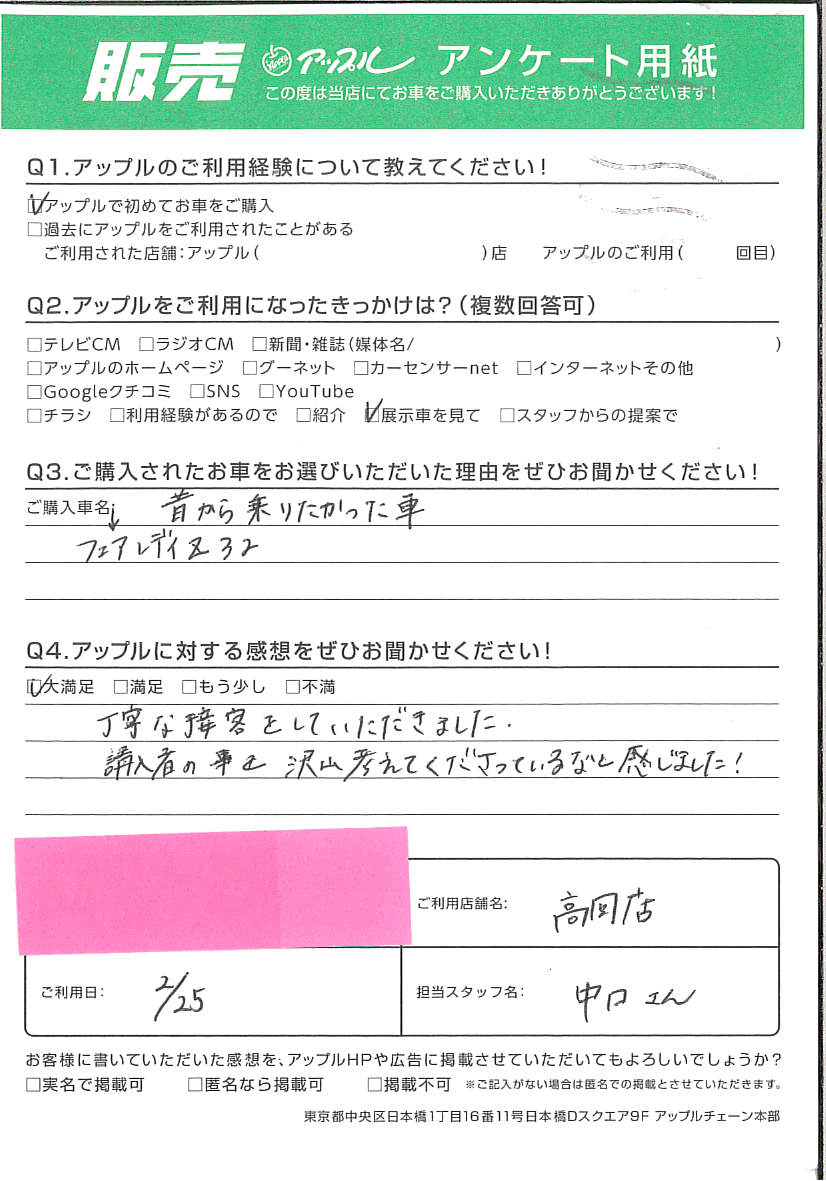 販売 アップル アンケート用紙
この度は当店にてお車をご購入いただきありがとうございます!
Q1.アップルのご利用経験について教えてください!
☑アップルで初めてお車をご購入
□過去にアップルをご利用されたことがある
ご利用された店舗:アップル( )店 アップルのご利用( 回目)
Q2.アップルをご利用になったきっかけは?(複数回答可)
□テレビCM □ラジオCM □新聞・雑誌(媒体名/ )
□アップルのホームページ □グーネット □カーセンサーnet □インターネットその他
□Googleクチコミ □SNS □YouTube
□チラシ □利用経験があるので □紹介 ☑展示車を見て □スタッフからの提案で
Q3.ご購入されたお車をお選びいただいた理由をぜひお聞かせください!
ご購入車名: 昔から乗りたかった車
フェアレディZ32
Q4.アップルに対する感想をぜひお聞かせください!
☑大満足 □満足 □もう少し □不満
丁寧な接客をしていただきました.
購入者の事を沢山考えてくださっているなと感じました!
ご利用店舗名: 高岡店
ご利用日: 2/25 担当スタッフ名: 中口さん
お客様に書いていただいた感想を、アップルHPや広告に掲載させていただいてもよろしいでしょうか?
□実名で掲載可 □匿名なら掲載可 □掲載不可 ※ご記入がない場合は匿名での掲載とさせていただきます。
東京都中央区日本橋1丁目16番11号日本橋Dスクエア9F アップルチェーン本部